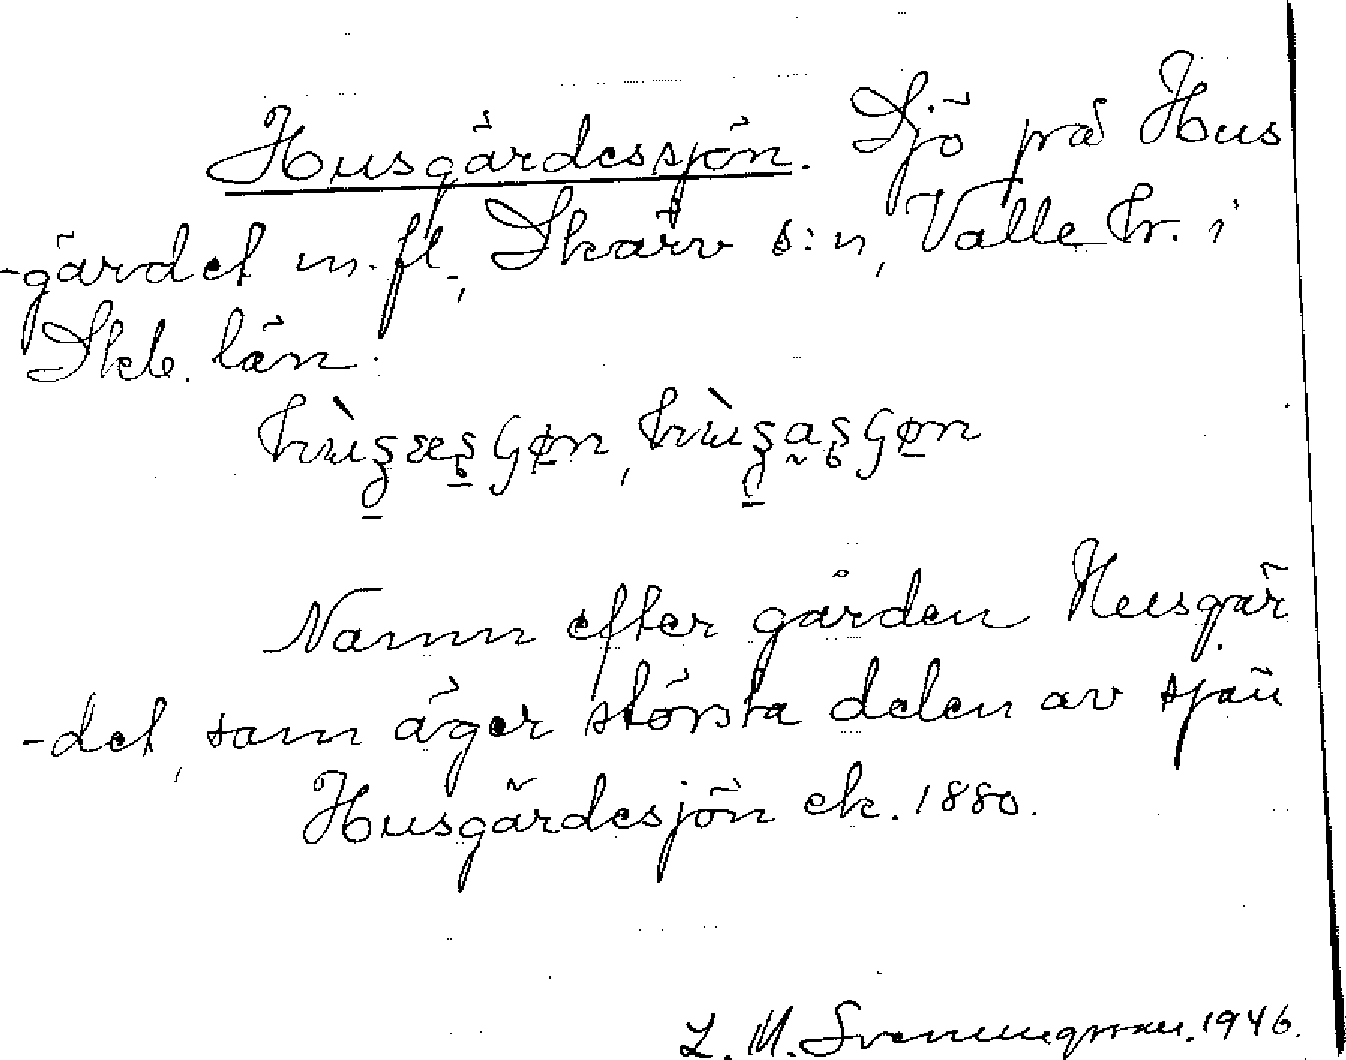 Husgärdessjön. Sjö på Hus
-gärdet m. fl., Skärv s:n, Valle hr. i
Skb. län.
Namn efter gården Husgär
-det, som äger största delen av sjön
Husgärdesjön ek. 1880.
L. M. Svenungsson. 1946.